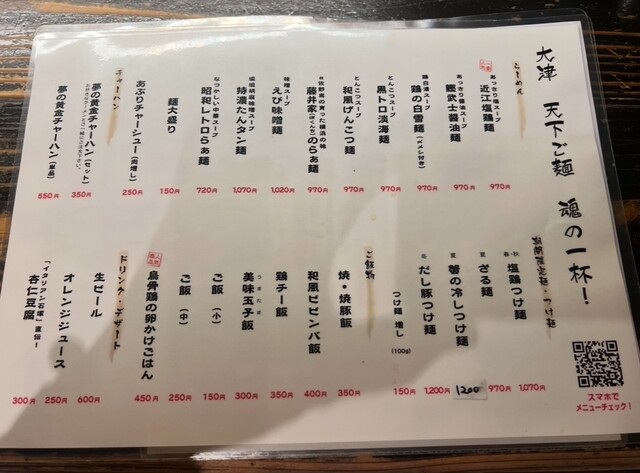 大津 天下ご麺 魂の一杯!
らーめん
あっさり塩スープ
近江塩鶏麺
970円
あっさり醤油スープ
鰹武士醤油麺
970円
鶏白湯スープ
鶏の白雪麺(〆メシ付き)
970円
とんこつスープ
黒トロ淡海麺
970円
とんこつスープ
和風げんこつ麺
970円
藤井家(ほくんち)のらぁ麺
970円
味噌スープ
えび味噌麺
1,020円
塩胡椒味噌スープ
特濃たんタン麺
1,070円
なつかしい中華スープ
昭和レトロらぁ麺
720円
麺大盛り
150円
あぶりチャーシュー(肉増し)
250円
チャーハン
夢の黄金チャーハン(セット)
350円
夢の黄金チャーハン(単品)
550円
期間限定麺・つけ麺
春・秋
塩鶏つけ麺
1,070円
夏
ざる麺
970円
夏
の冷しつけ麺
1200
冬
だし豚つけ麺
1,200円
つけ麺 増し(100g)
150円
ご飯物
焼・焼豚飯
350円
和風ビビンバ飯
400円
鶏チー飯
350円
うまたま
美味玉子飯
300円
ご飯(小)
150円
ご飯(中)
250円
烏骨鶏の卵かけごはん
450円
ドリンク・デザート
生ビール
600円
オレンジジュース
250円
「イタリアン石塚」直伝!
杏仁豆腐
300円
スマホで
メニューチェック!